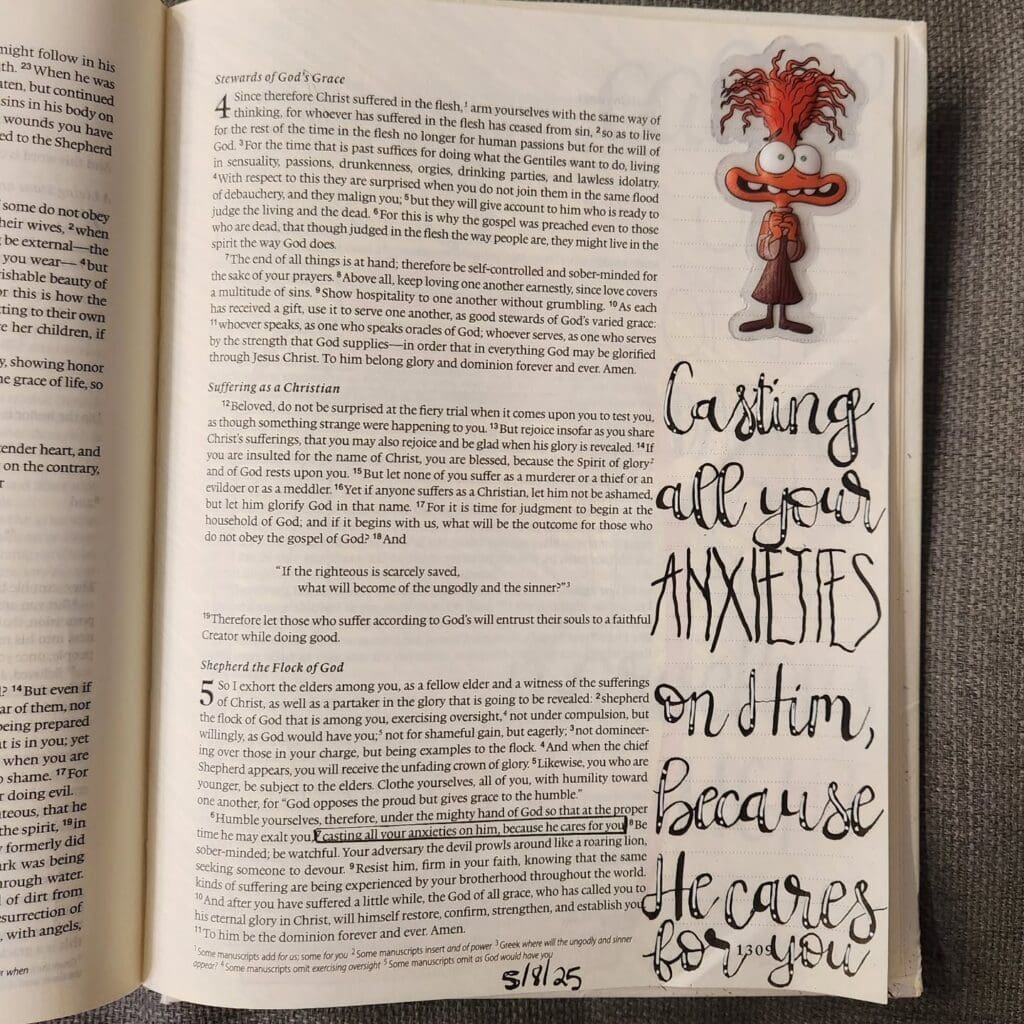 might follow in his
th. 23When he was
aten, but continued
sins in his body on
wounds you have
ed to the Shepherd
some do not obey
heir wives, 2when
be external—the
you wear— 4but
rishable beauty of
or this is how the
tting to their own
e her children, if
y, showing honor
he grace of life, so
tender heart, and
on the contrary,
r
? 14But even if
ar of them, nor
being prepared
t is in you; yet
when you are
o shame. 17For
r doing evil.
teous, that he
the spirit, 19in
y formerly did
ark was being
hrough water.
l of dirt from
esurrection of
, with angels,
r when
Stewards of God's Grace
4 Since therefore Christ suffered in the flesh,1 arm yourselves with the same way of
thinking, for whoever has suffered in the flesh has ceased from sin, 2so as to live
for the rest of the time in the flesh no longer for human passions but for the will of
God. 3For the time that is past suffices for doing what the Gentiles want to do, living
in sensuality, passions, drunkenness, orgies, drinking parties, and lawless idolatry.
4With respect to this they are surprised when you do not join them in the same flood
of debauchery, and they malign you; 5but they will give account to him who is ready to
judge the living and the dead. 6For this is why the gospel was preached even to those
who are dead, that though judged in the flesh the way people are, they might live in the
spirit the way God does.
7The end of all things is at hand; therefore be self-controlled and sober-minded for
the sake of your prayers. 8Above all, keep loving one another earnestly, since love covers
a multitude of sins. 9Show hospitality to one another without grumbling. 10As each
has received a gift, use it to serve one another, as good stewards of God's varied grace:
11whoever speaks, as one who speaks oracles of God; whoever serves, as one who serves
by the strength that God supplies—in order that in everything God may be glorified
through Jesus Christ. To him belong glory and dominion forever and ever. Amen.
Suffering as a Christian
12Beloved, do not be surprised at the fiery trial when it comes upon you to test you,
as though something strange were happening to you. 13But rejoice insofar as you share
Christ's sufferings, that you may also rejoice and be glad when his glory is revealed. 14If
you are insulted for the name of Christ, you are blessed, because the Spirit of glory2
and of God rests upon you. 15But let none of you suffer as a murderer or a thief or an
evildoer or as a meddler. 16Yet if anyone suffers as a Christian, let him not be ashamed,
but let him glorify God in that name. 17For it is time for judgment to begin at the
household of God; and if it begins with us, what will be the outcome for those who
do not obey the gospel of God? 18And
"If the righteous is scarcely saved,
what will become of the ungodly and the sinner?"3
19Therefore let those who suffer according to God's will entrust their souls to a faithful
Creator while doing good.
Shepherd the Flock of God
5 So I exhort the elders among you, as a fellow elder and a witness of the sufferings
of Christ, as well as a partaker in the glory that is going to be revealed: 2shepherd
the flock of God that is among you, exercising oversight,4 not under compulsion, but
willingly, as God would have you;5 not for shameful gain, but eagerly; 3not domineer-
ing over those in your charge, but being examples to the flock. 4And when the chief
Shepherd appears, you will receive the unfading crown of glory. 5Likewise, you who are
younger, be subject to the elders. Clothe yourselves, all of you, with humility toward
one another, for "God opposes the proud but gives grace to the humble."
6Humble yourselves, therefore, under the mighty hand of God so that at the proper
time he may exalt you, 7casting all your anxieties on him, because he cares for you. 8Be
sober-minded; be watchful. Your adversary the devil prowls around like a roaring lion,
seeking someone to devour. 9Resist him, firm in your faith, knowing that the same
kinds of suffering are being experienced by your brotherhood throughout the world.
10And after you have suffered a little while, the God of all grace, who has called you to
his eternal glory in Christ, will himself restore, confirm, strengthen, and establish you.
11To him be the dominion forever and ever. Amen.
1 Some manuscripts add for us; some for you 2 Some manuscripts insert and of power 3 Greek where will the ungodly and sinner
appear? 4 Some manuscripts omit exercising oversight 5 Some manuscripts omit as God would have you
5/8/25
Casting
all your
ANXIETIES
on Him,
because
He cares
for you
1309